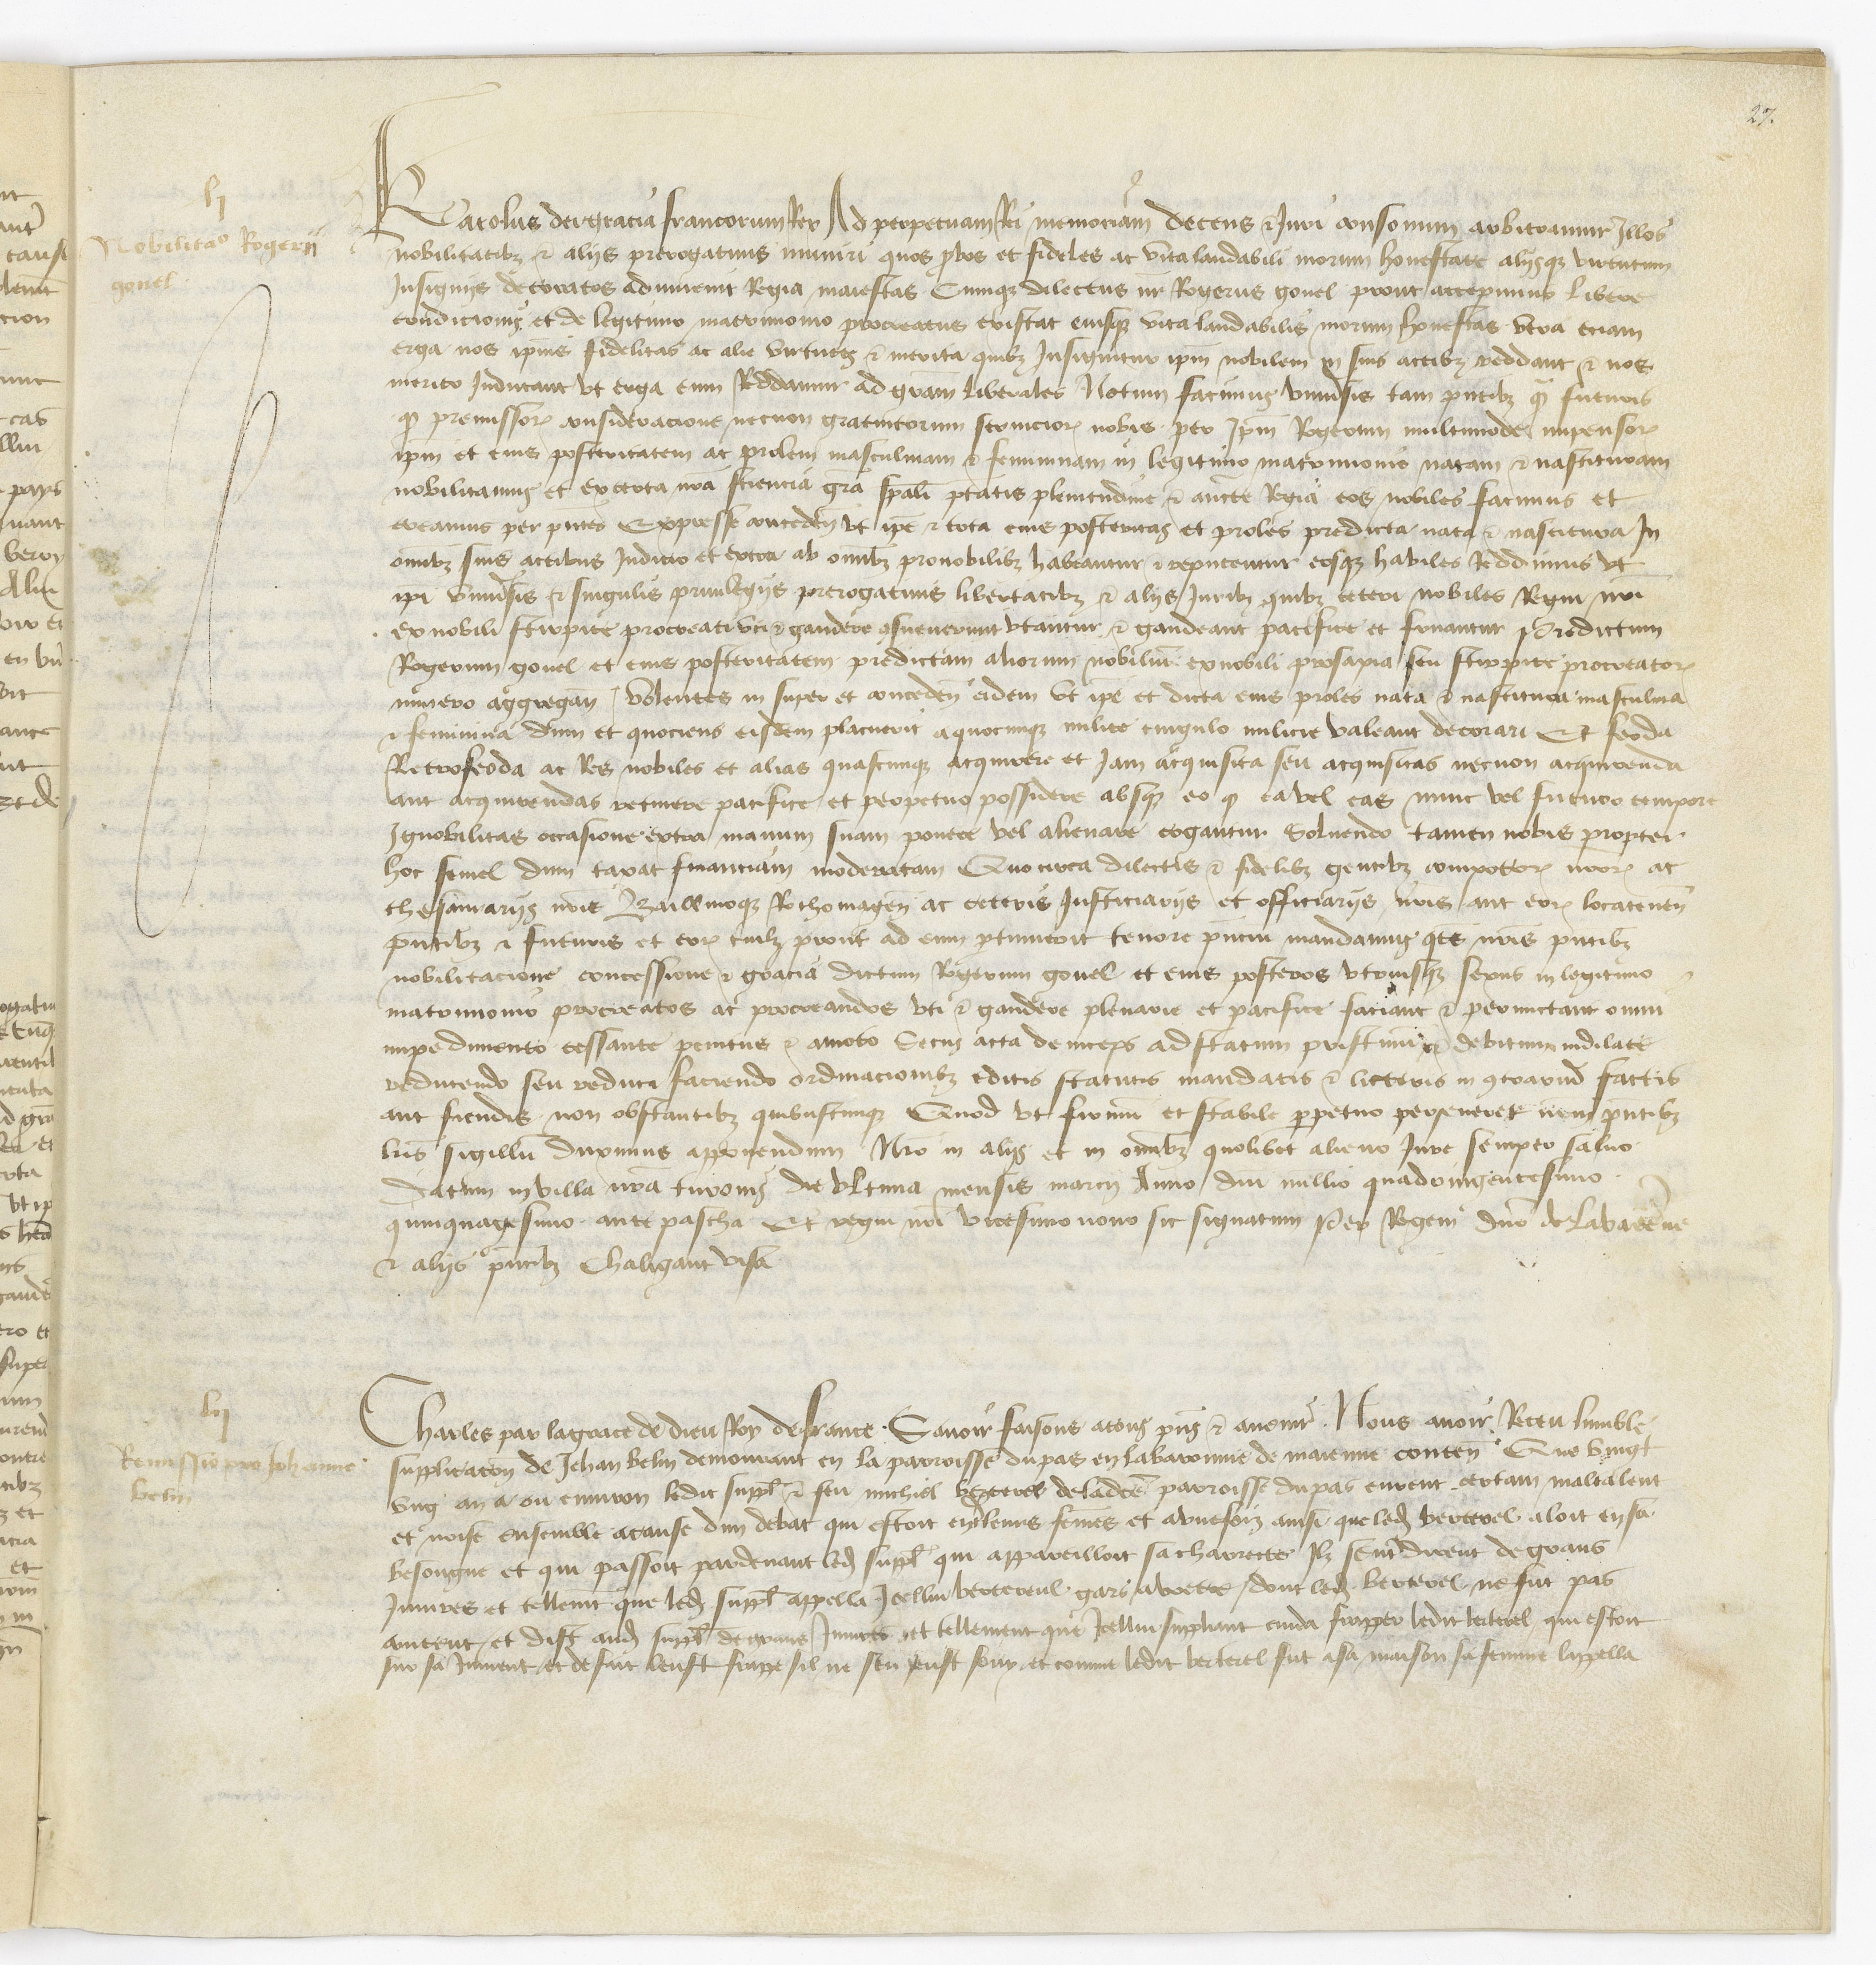 27.
lj
Nobilitaō Rogerii
gouel
Karolus dei gracia francorum Rex Ad perpetuam Rei memoriam Decens & Juri consonum arbitramur Illos
nobilitatibz & alijs prerogativis muniri quos pbos et fideles ac vita laudabili morum honestate alijsqz virtutum
Insignijs decoratos adinvenit Regia maiestas Cumqz dilectus nr̄ Rogerus gouel prout accepimus libere
condicionis et de legitimo matrimonio procreatus existat eiusqz vita laudabilis morum honestas vera eciam
erga nos ipīus fidelitas ac alie virtutes & merita quibz Insignitur ipm̄ nobilem in suis actibz reddant & nos
merito Inducant vt erga eum Reddamur ad grām liberales Notum facimus universis tam pn̄tibz qm̄ futuris
q̄ premissorꝝ consideracione necnon gratuitorum serviciorꝝ nobis per Ipm̄ Rogerum multimode impensorꝝ
ipm̄ et eius posteritatem ac prolem masculinam & femininam in legitimo matrimonio natam & nascituram
nobilitamus et ex certa nr̄a sciencia grā spāli ptātis plenitudine & aucte Regia eos nobiles facimus et
creamus per pn̄tes Expresse conceden̄ vt ipē & tota eius posteritas et proles predicta nata & nascitura In
omībz suis actibus Judicio et extra ab omībz pro nobilibz habeantur & reputentur eosqz habiles Reddimus vt
ipi universis & singulis privilegijs prerogativis libertatibz & alijs Juribz quibz ceteri nobiles Regni nr̄i
ex nobili stirpite procreati uti & gaudere consueuerunt vtantur & gaudeant pacifice et fruantur Predictum
Rogerum gouel et eius posteritatem predictam aliorum nobilium ex nobili prosapia seu stirpite procreatorꝝ
numero aggregan̄ / Volentes in super et conceden̄ eidem vt ipē et dicta eius proles nata & nascitura masculina
& feminina dum et quociens eisdem placuerit a quocunqz milite cingulo milicie valeant decorari Et feoda
Retrofeoda ac Res nobiles et alias quascunqz acquirere et Jam acquisita seu acquisitas necnon acquirenda
aut acquirendas retinere pacifice et perpetuo possidere absqz eo q̄ ea vel eas nunc vel futuro tempore
Ignobilitas occasione extra manum suam ponere vel alienare cogantur Soluendo tamen nobis propter
hoc semel dum taxat financiam moderatam Quocirca dilectis & fidelibz gentibz compotorꝝ nr̄orꝝ ac
thesaurarijs nr̄is Baillivoqz Rothomagen̄ ac ceteris Justiciarijs et officiarijs nr̄is aut eorꝝ locatenen̄
pn̄tibz & futuris et eorꝝ cuilz prout ad eum ptinuerit tenore pn̄cium mandamus qts nr̄is pn̄tibz
nobilitacione concessione & gracia dictum Rogerum gouel et eius posteros vtriusqz sexus in legitimo
matrimonio procreatos ac procreandos uti & gaudere plenarie et pacifice faciant & permictant omni
impedimento cessante penitus & amoto Secus acta deinceps ad statum pristinū & debitum indilate
reducendo seu reduci faciendo ordinacionibz editis statutis mandatis & licteris in 9trarium factis
aut fiendis non obstantibz quibuscunqz Quod vt firmū et stabile perpetuo perseueret nr̄um pn̄tibz
lrīs sigillū duximus apponendum Nr̄o in alijs et in omībz quolibet alieno Jure semper saluo
Datum in villa nr̄a turonis die vltima mensis marcij Anno dni millīo quadringentesimo
quinquagesimo ante pascha Et regni nr̄i vicesimo nono sic signatum Per Regem dnō de la varēne
& alijs pn̄tibz Chaligaut visa
lij
Remissio pro Johanne
belin
Charles par la grace de dieu Roy de france Savoir faisons a tous pn̄s & avenir Nous avoir Receu lumble
supplicacōn de Jehan belin demourant en la parroisse du pas en la baronnie de maienne conten̄ Que vingt
ung an a ou environ ledit suppl̄ & feu michiel berterel de ladicte parroisse du pas eurent certain maltalent
et noise ensemble a cause dun debat qui estoit entre leurs femes et a unefoiz ainsi que led berterel aloit en sa
besongne et qui passoit par devant led suppl̄ qui appareilloit sa charrecte Ilz sentredirent de grans
Iniures et tellement que led suppl̄ appella Icellui bertereul gars avoitre / dont led berterel ne fut pas
content / et dist aud suppl̄ de grans Iniures et tellement que Icellui suppliant cuida frapper ledit berterel qui estoit
sur sa Jument et de fait leust frappe sil ne sen feust fouy et comme ledit berterel fut a sa maison sa femme lappella